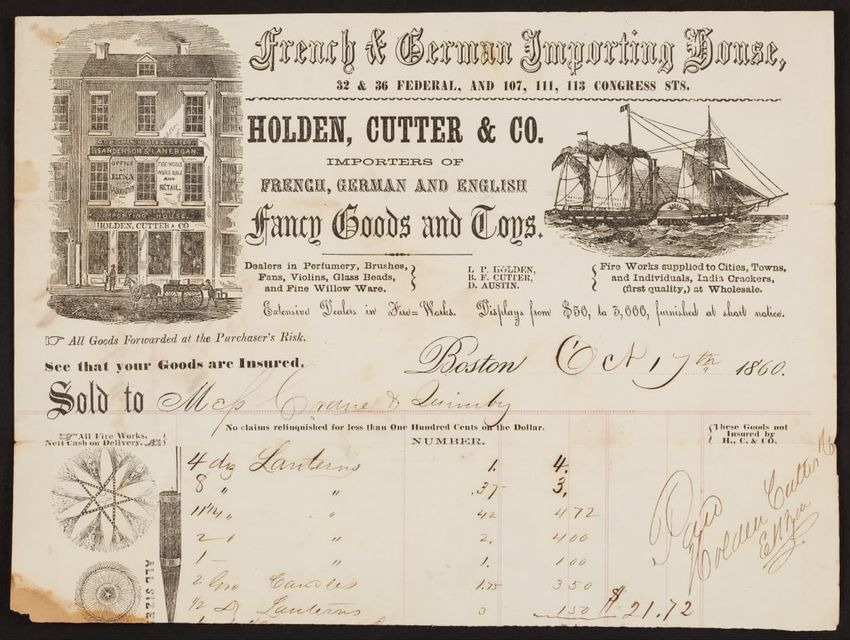 French & German Importing House,
32 & 36 FEDERAL, AND 107, 111, 113 CONGRESS STS.
HOLDEN, CUTTER & CO.
IMPORTERS OF
FRENCH, GERMAN AND ENGLISH
Fancy Goods and Toys.
SANDERSON & LANERGAN.
OFFICE
ETNA
FIRE WORKS
WHOLESALE
AND
RETAIL.
IMPORTING HOUSE,
HOLDEN, CUTTER & CO
Dealers in Perfumery, Brushes,
Fans, Violins, Glass Beads,
and Fine Willow Ware.
L. P. HOLDEN,
B. F. CUTTER,
D. AUSTIN.
Fire Works supplied to Cities, Towns,
and Individuals, India Crackers,
(first quality,) at Wholesale.
Extensive Dealers in Fire=Works. Displays from $50, to 5,000, furnished at short notice.
☞ All Goods Forwarded at the Purchaser's Risk.
See that your Goods are Insured.
Boston Oct 17th 1860.
Sold to Mess Crane & Quimby
No claims relinquished for less than One Hundred Cents on the Dollar.
☞ All Fire Works,
Nett Cash on Delivery.
NUMBER.
These Goods not
Insured by
H., C. & CO.
4 dz Lanterns 1. 4.
8 " " .37 3,
11 1/4 " " 42 4 72
2 " 2. 4 00
1 " 1. 1 00
2 Gro Candles 1.75 3 50
1/2 Dz Lanterns 3 1 50 $ 21.72
Paid
Holden Cutter & Co
ALL SIZE